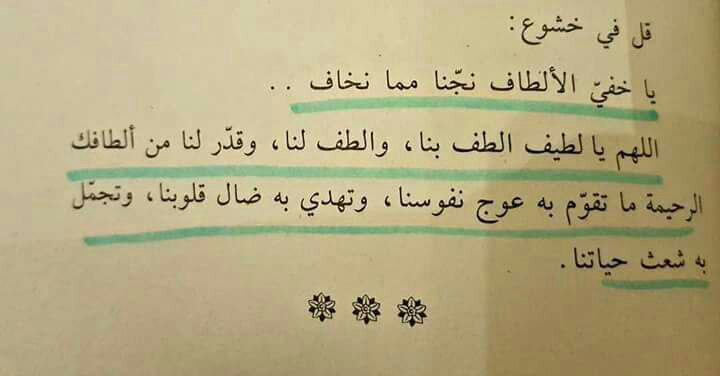 قل في خشوع:
يا خفيّ الألطاف نجّنا مما نخاف ..
اللهم يا لطيف الطف بنا، والطف لنا، وقدّر لنا من ألطافك
الرحيمة ما تقوّم به عوج نفوسنا، وتهدي به ضال قلوبنا، وتجمّل
به شعث حياتنا.